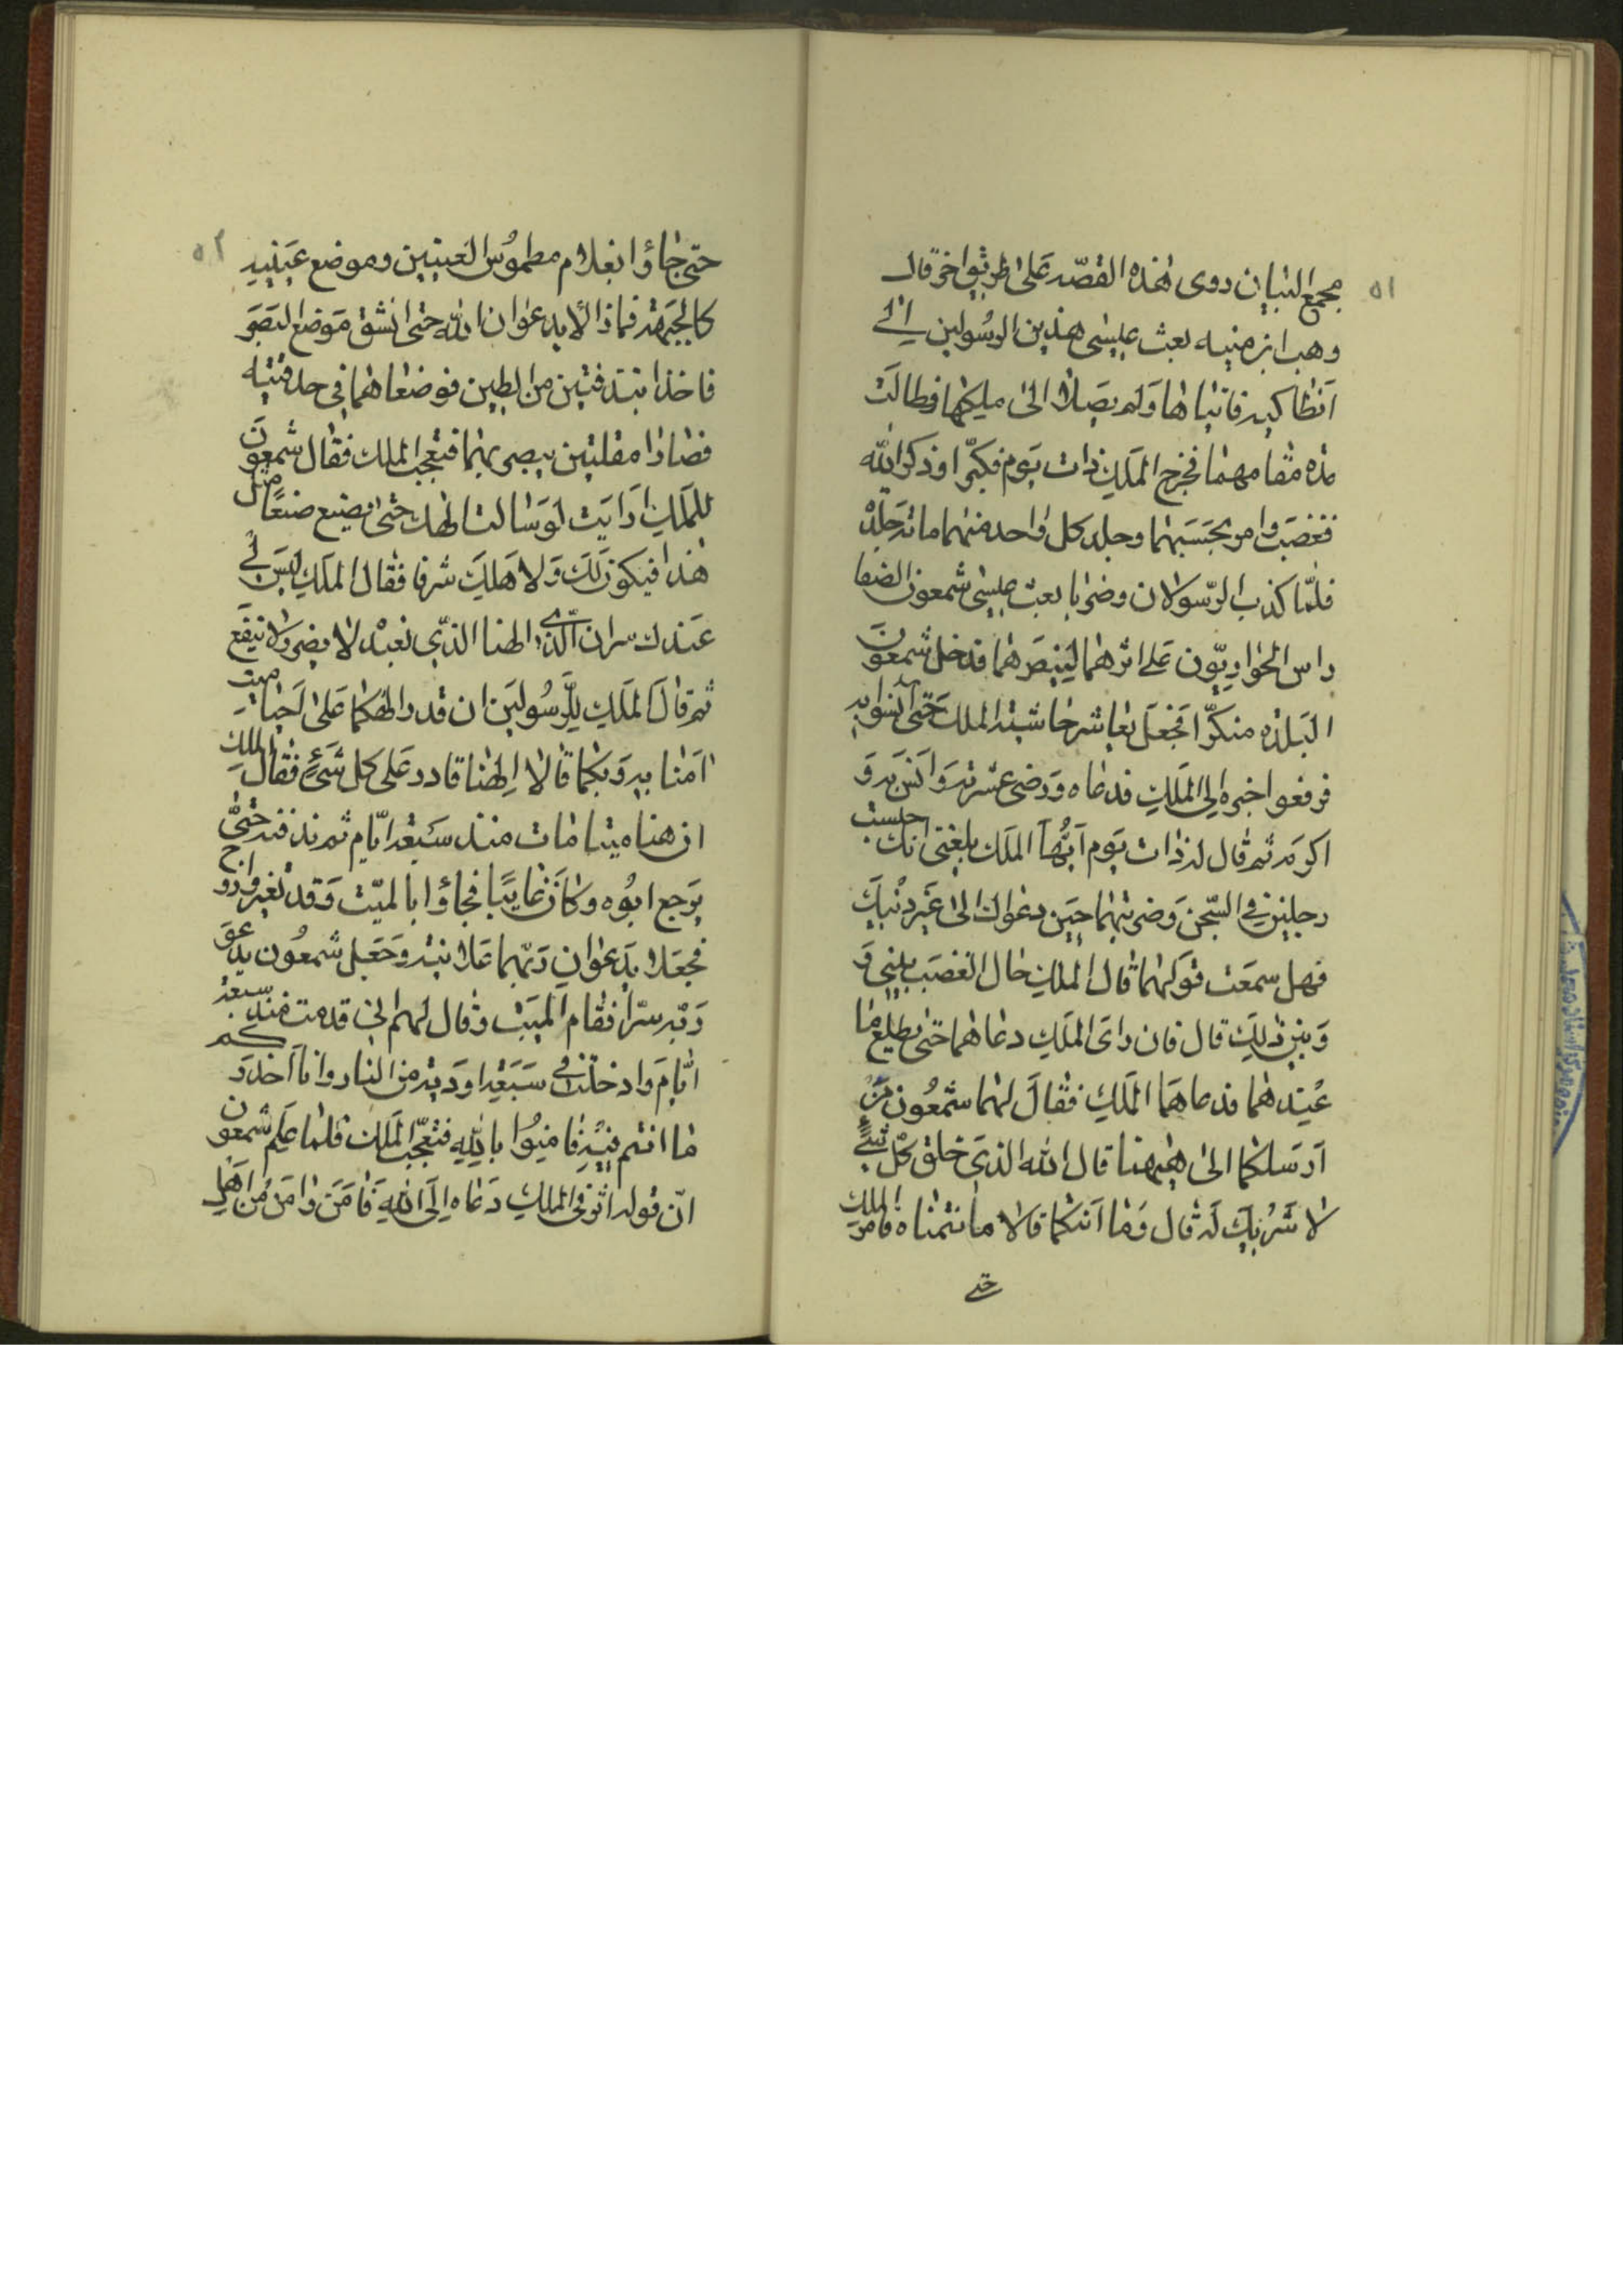 ٥١
مجمع البيان روى هذه القصّه على طريق اخر قال
وهب ابن منبه بعث عيسى هذين الرسُولين الى
انطاكيه فاتياها وَلم يصَلا الى ملكها وطالَت
مده مقامهما فخرج الملَك ذات يَوم فكبّرا وذكرا الله
فغضبَ وامر بحَبسَهما وجلد كل واحد منهما مائه جَلده
فلمّا كذب الرّسولان وضربا بعث عيسى شمعون الصفا
راس الحواريّون عَلى اثرهما ليَنصَرهما فدخل شمعُون
البَلده منكرّا فجَعَل يعاشر حاشيه الملك حَتى انسوا به
فرفعوا خبره الى الملَك فدعاه وَرضى عشرته وَانسَ به وَ
اكرمَه ثم قال له ذات يَوم ايّها الملَك بلغنى انك حبست
رجلين فى السّجن وَضربتهما حيَن دعواك الى غَير دينكَ
فهل سمعَت قوَلهما قال الملك حال الغضبَ بينى وَ
وَبين ذلكَ قال فان راىَ الملَك دعاهما حتى يطلع ما
عنِدهما فدعاهمَا الملَك فقالَ لهما شمعُون مَن
ارَسَلكما الى هيهنا قال الله الذىَ خلق كلّ شئ
لا شَريكَ لَه قال وَما ايَتكما قالا ما تتمناه فامر الملك
حتى
٥٢
حتى جاؤا بغلام مطموُس العَينين وموضع عَينيه
كالجَبهَة فمازالا يدعوان الله حتى انشق مَوضع البَصَر
فاخذا بندقتين من الطين فوضعاهما فى حدقتيه
فصارا مقلتين يبصر بهما فتعجّب الملك فقال شمعوُن
للملَك ارَايَت لوَ سالت الهك حَتى يصنع صنعًا مثل
هذا فيكون لكَ وَلالهكَ شرفا فقال الملَك ليَس لى
عَندك سر ان الهنا الذّى نعبده لا يضر وَلا ينفَع
ثم قالَ الملَك للرَّسُولَين ان قدر الهكما عَلى احَياء ميت
امَنا به وَبكما قالا الهنا قادر عَلى كل شَئٍ فقالَ الملك
ان هنا ميتا مات منذ سَبعَة ايّام ثم ندفنه حَتى
يرَجع ابُوه وكانَ غايبًا فجاؤا بالميّت وَقد تغير واروح
فجعَلا يدَعوان ربّهما عَلانيَة وَجَعَل شمعُون يدعو
رَبّه سرّا فقام الميَت وقال لهم انى قد مت منذ سبعَة
ايّامَ وادخلت فى سَبعَة اودَيَة من النار وانا احذركم
ما انتم فيِه فامنِوُا بالله فتعجّبَ الملَك فلما عَلم شمعُون
انّ قوله اثر فى الملك دَعاه الَى الله فَامَنَ وَامَنَ من اهَل